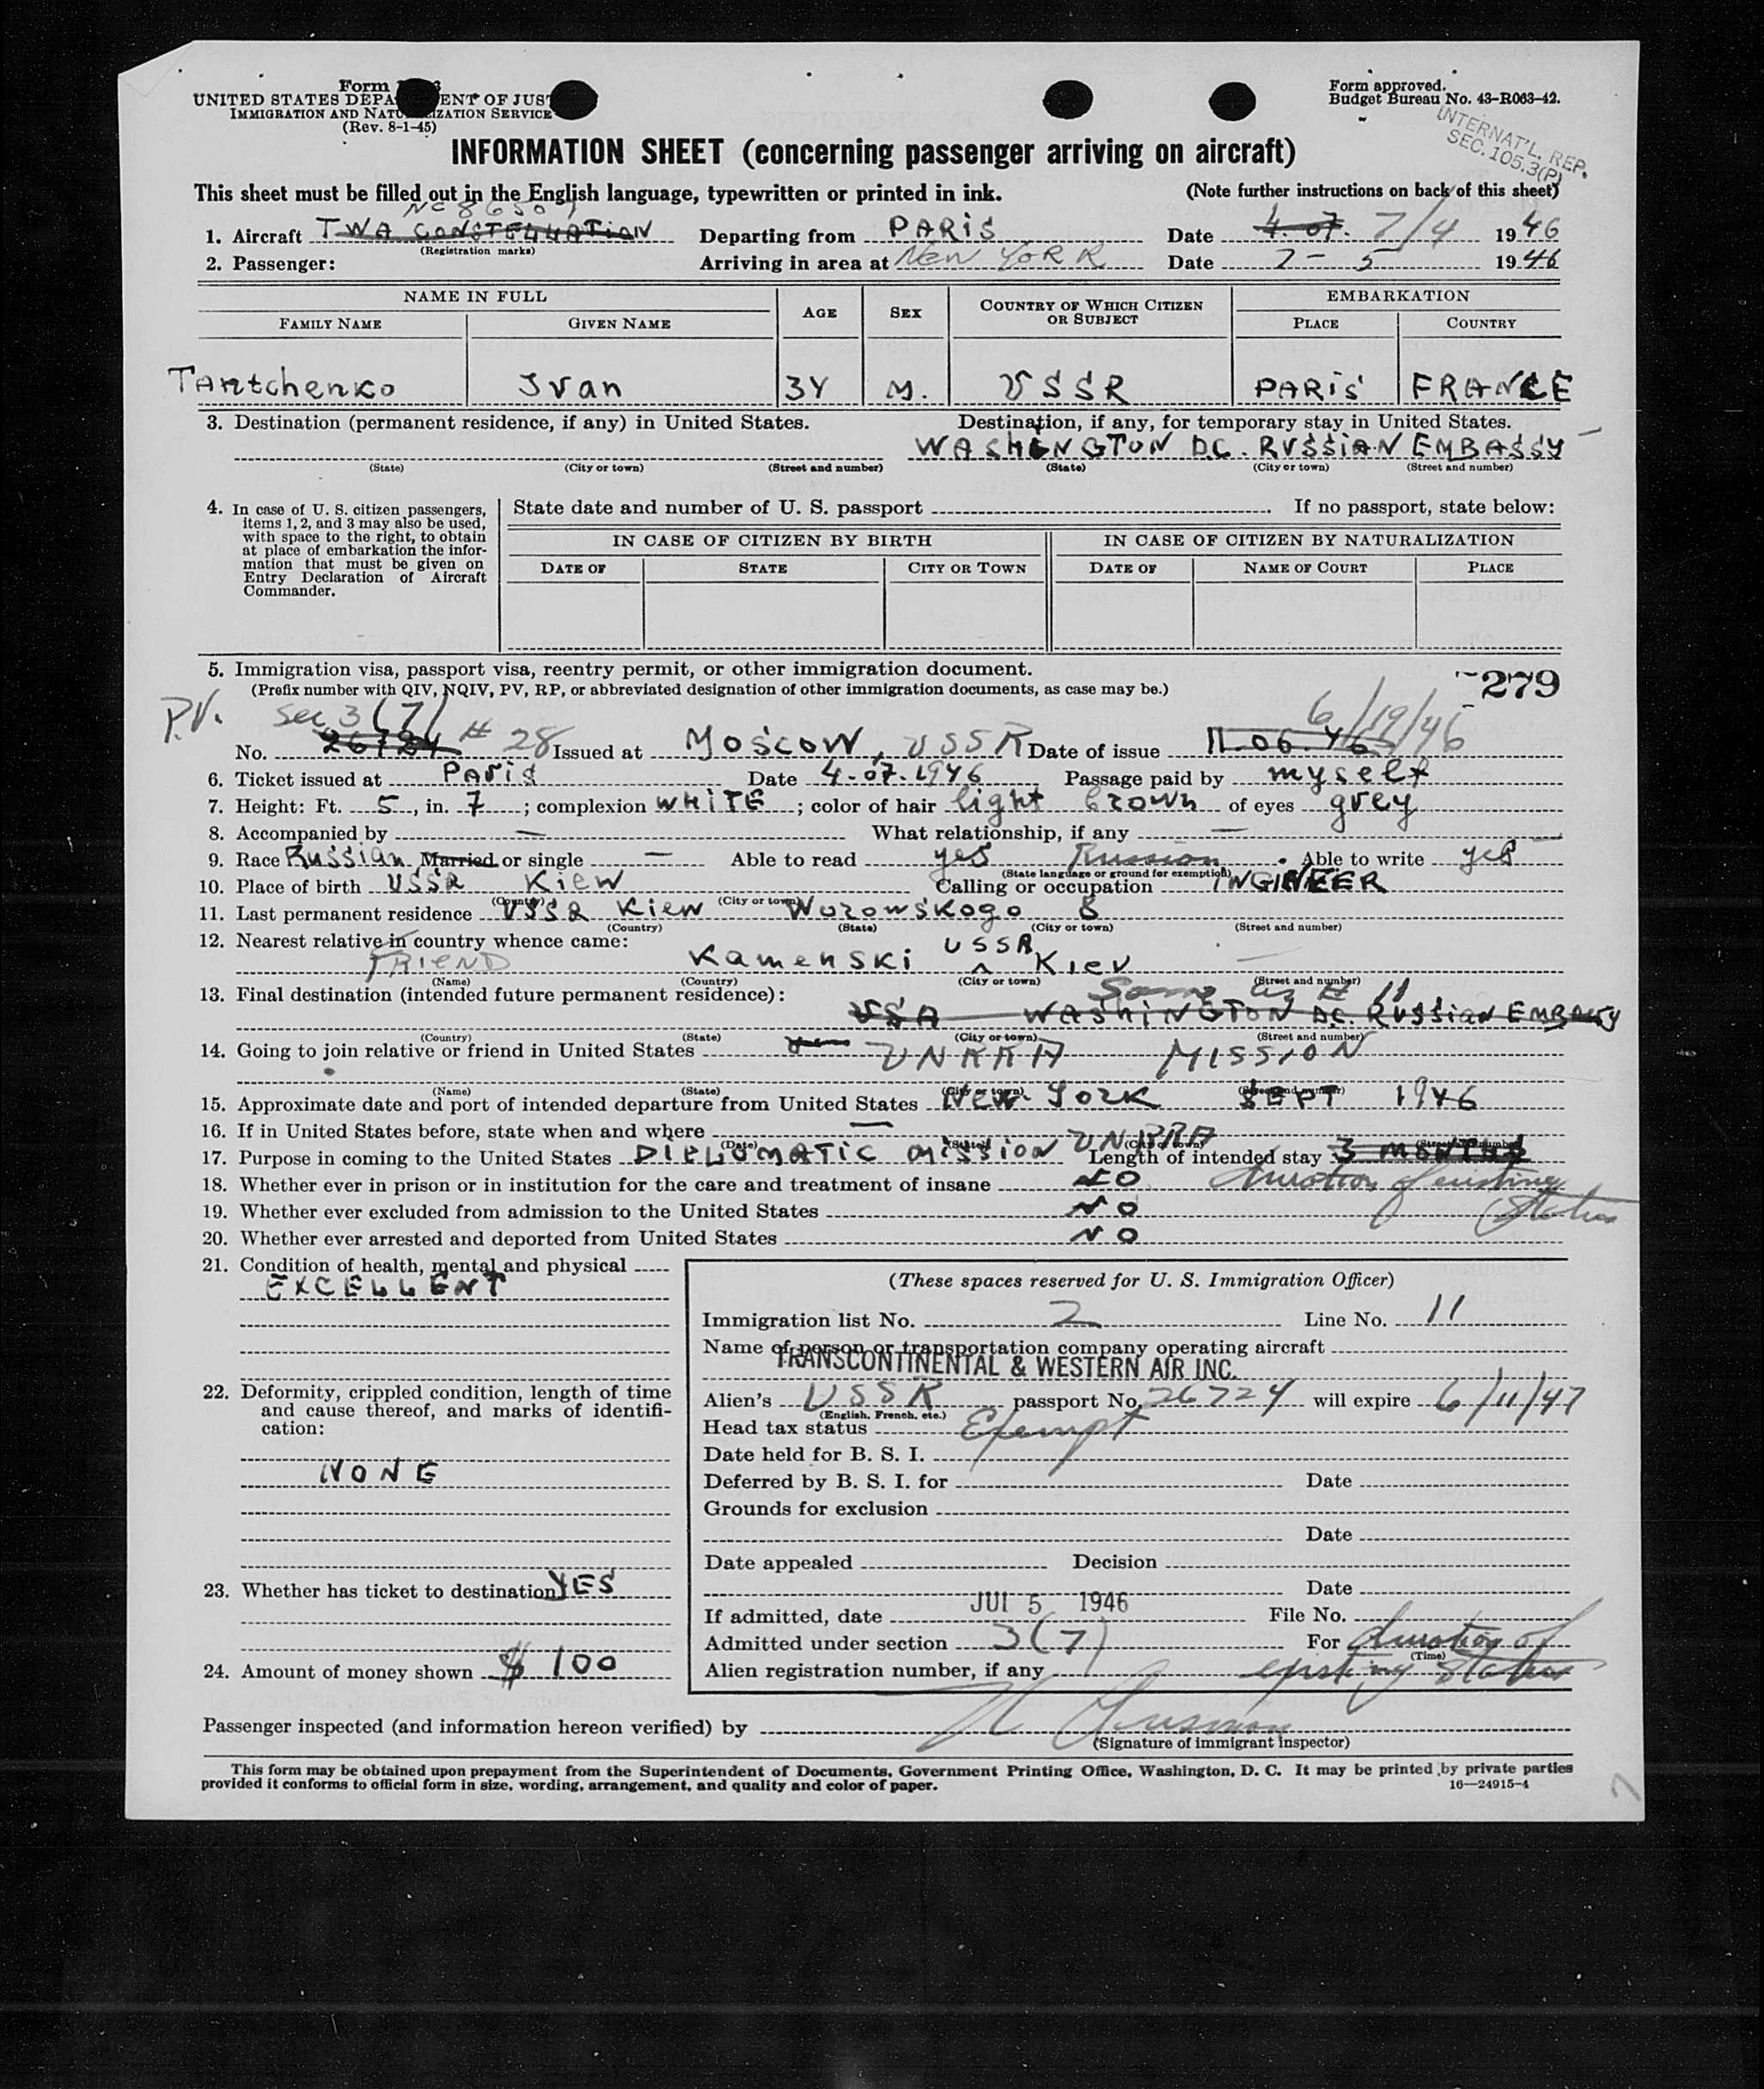 Form
UNITED STATES DEPA ENT OF JUS
IMMIGRATION AND NATU IZATION SERVICE
(Rev. 8-1-45)
Form approved.
Budget Bureau No. 43-R063-42.
INTERNAT'L. REP.
SEC. 105.3(P)
INFORMATION SHEET (concerning passenger arriving on aircraft)
This sheet must be filled out in the English language, typewritten or printed in ink. (Note further instructions on back of this sheet)
1. Aircraft TWA CONSTELLATION Departing from PARIS Date 4.07. 7/4 1946
(Registration marks)
2. Passenger: Arriving in area at NEW YORK Date 7-5 1946
NAME IN FULL AGE SEX COUNTRY OF WHICH CITIZEN OR SUBJECT EMBARKATION
FAMILY NAME GIVEN NAME PLACE COUNTRY
Tantchenko Ivan 34 M. USSR PARIS FRANCE
3. Destination (permanent residence, if any) in United States. Destination, if any, for temporary stay in United States.
WASHINGTON D.C. RUSSIAN EMBASSY
(State) (City or town) (Street and number) (State) (City or town) (Street and number)
4. In case of U. S. citizen passengers, items 1, 2, and 3 may also be used, with space to the right, to obtain at place of embarkation the information that must be given on Entry Declaration of Aircraft Commander.
State date and number of U. S. passport If no passport, state below:
IN CASE OF CITIZEN BY BIRTH IN CASE OF CITIZEN BY NATURALIZATION
DATE OF STATE CITY OR TOWN DATE OF NAME OF COURT PLACE
5. Immigration visa, passport visa, reentry permit, or other immigration document.
(Prefix number with QIV, NQIV, PV, RP, or abbreviated designation of other immigration documents, as case may be.)
279
P.V. Sec 3(7) 6/19/46
No. 26724 # 28 Issued at Moscow, USSR Date of issue 11.06.46
6. Ticket issued at Paris Date 4-07-1946 Passage paid by myself
7. Height: Ft. 5, in. 7; complexion WHITE; color of hair light brown of eyes grey
8. Accompanied by — What relationship, if any —
9. Race Russian Married or single — Able to read yes Russian. Able to write yes
(State language or ground for exemption)
10. Place of birth USSR Kiew Calling or occupation INGINEER
(Country) (City or town)
11. Last permanent residence USSR Kiew Worowskogo 8
(Country) (State) (City or town) (Street and number)
12. Nearest relative in country whence came:
FRIEND Kamenski USSR Kiev —
(Name) (Country) (City or town) (Street and number)
13. Final destination (intended future permanent residence): Same as # 11
USA WASHINGTON D.C. Russian EMBASSY
(Country) (State) (City or town) (Street and number)
14. Going to join relative or friend in United States UNRRA MISSION
(Name) (State) (City or town) (Street and number)
15. Approximate date and port of intended departure from United States New York SEPT 1946
16. If in United States before, state when and where —
(Date)
17. Purpose in coming to the United States DIPLOMATIC MISSION UNRRA Length of intended stay 3 MONTHS
18. Whether ever in prison or in institution for the care and treatment of insane NO duration of existing status
19. Whether ever excluded from admission to the United States NO
20. Whether ever arrested and deported from United States NO
21. Condition of health, mental and physical
EXCELLENT
22. Deformity, crippled condition, length of time and cause thereof, and marks of identification:
NONE
23. Whether has ticket to destination YES
24. Amount of money shown $ 100
(These spaces reserved for U. S. Immigration Officer)
Immigration list No. 2 Line No. 11
Name of person or transportation company operating aircraft
TRANSCONTINENTAL & WESTERN AIR INC.
Alien's USSR passport No. 26724 will expire 6/11/47
(English, French, etc.)
Head tax status Exempt
Date held for B. S. I.
Deferred by B. S. I. for Date
Grounds for exclusion
Date
Date appealed Decision
Date
If admitted, date JUL 5 1946 File No.
Admitted under section 3(7) For duration of
(Time)
Alien registration number, if any existing status
Passenger inspected (and information hereon verified) by
(Signature of immigrant inspector)
This form may be obtained upon prepayment from the Superintendent of Documents, Government Printing Office, Washington, D. C. It may be printed by private parties
provided it conforms to official form in size, wording, arrangement, and quality and color of paper. 16—24915-4